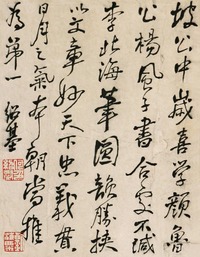 坡公中歲喜學顏魯
公楊風子書合處不減
李北海筆圓韻勝挾
以文章妙天下忠義貫
日月之氣本朝當推
為第一 紹基